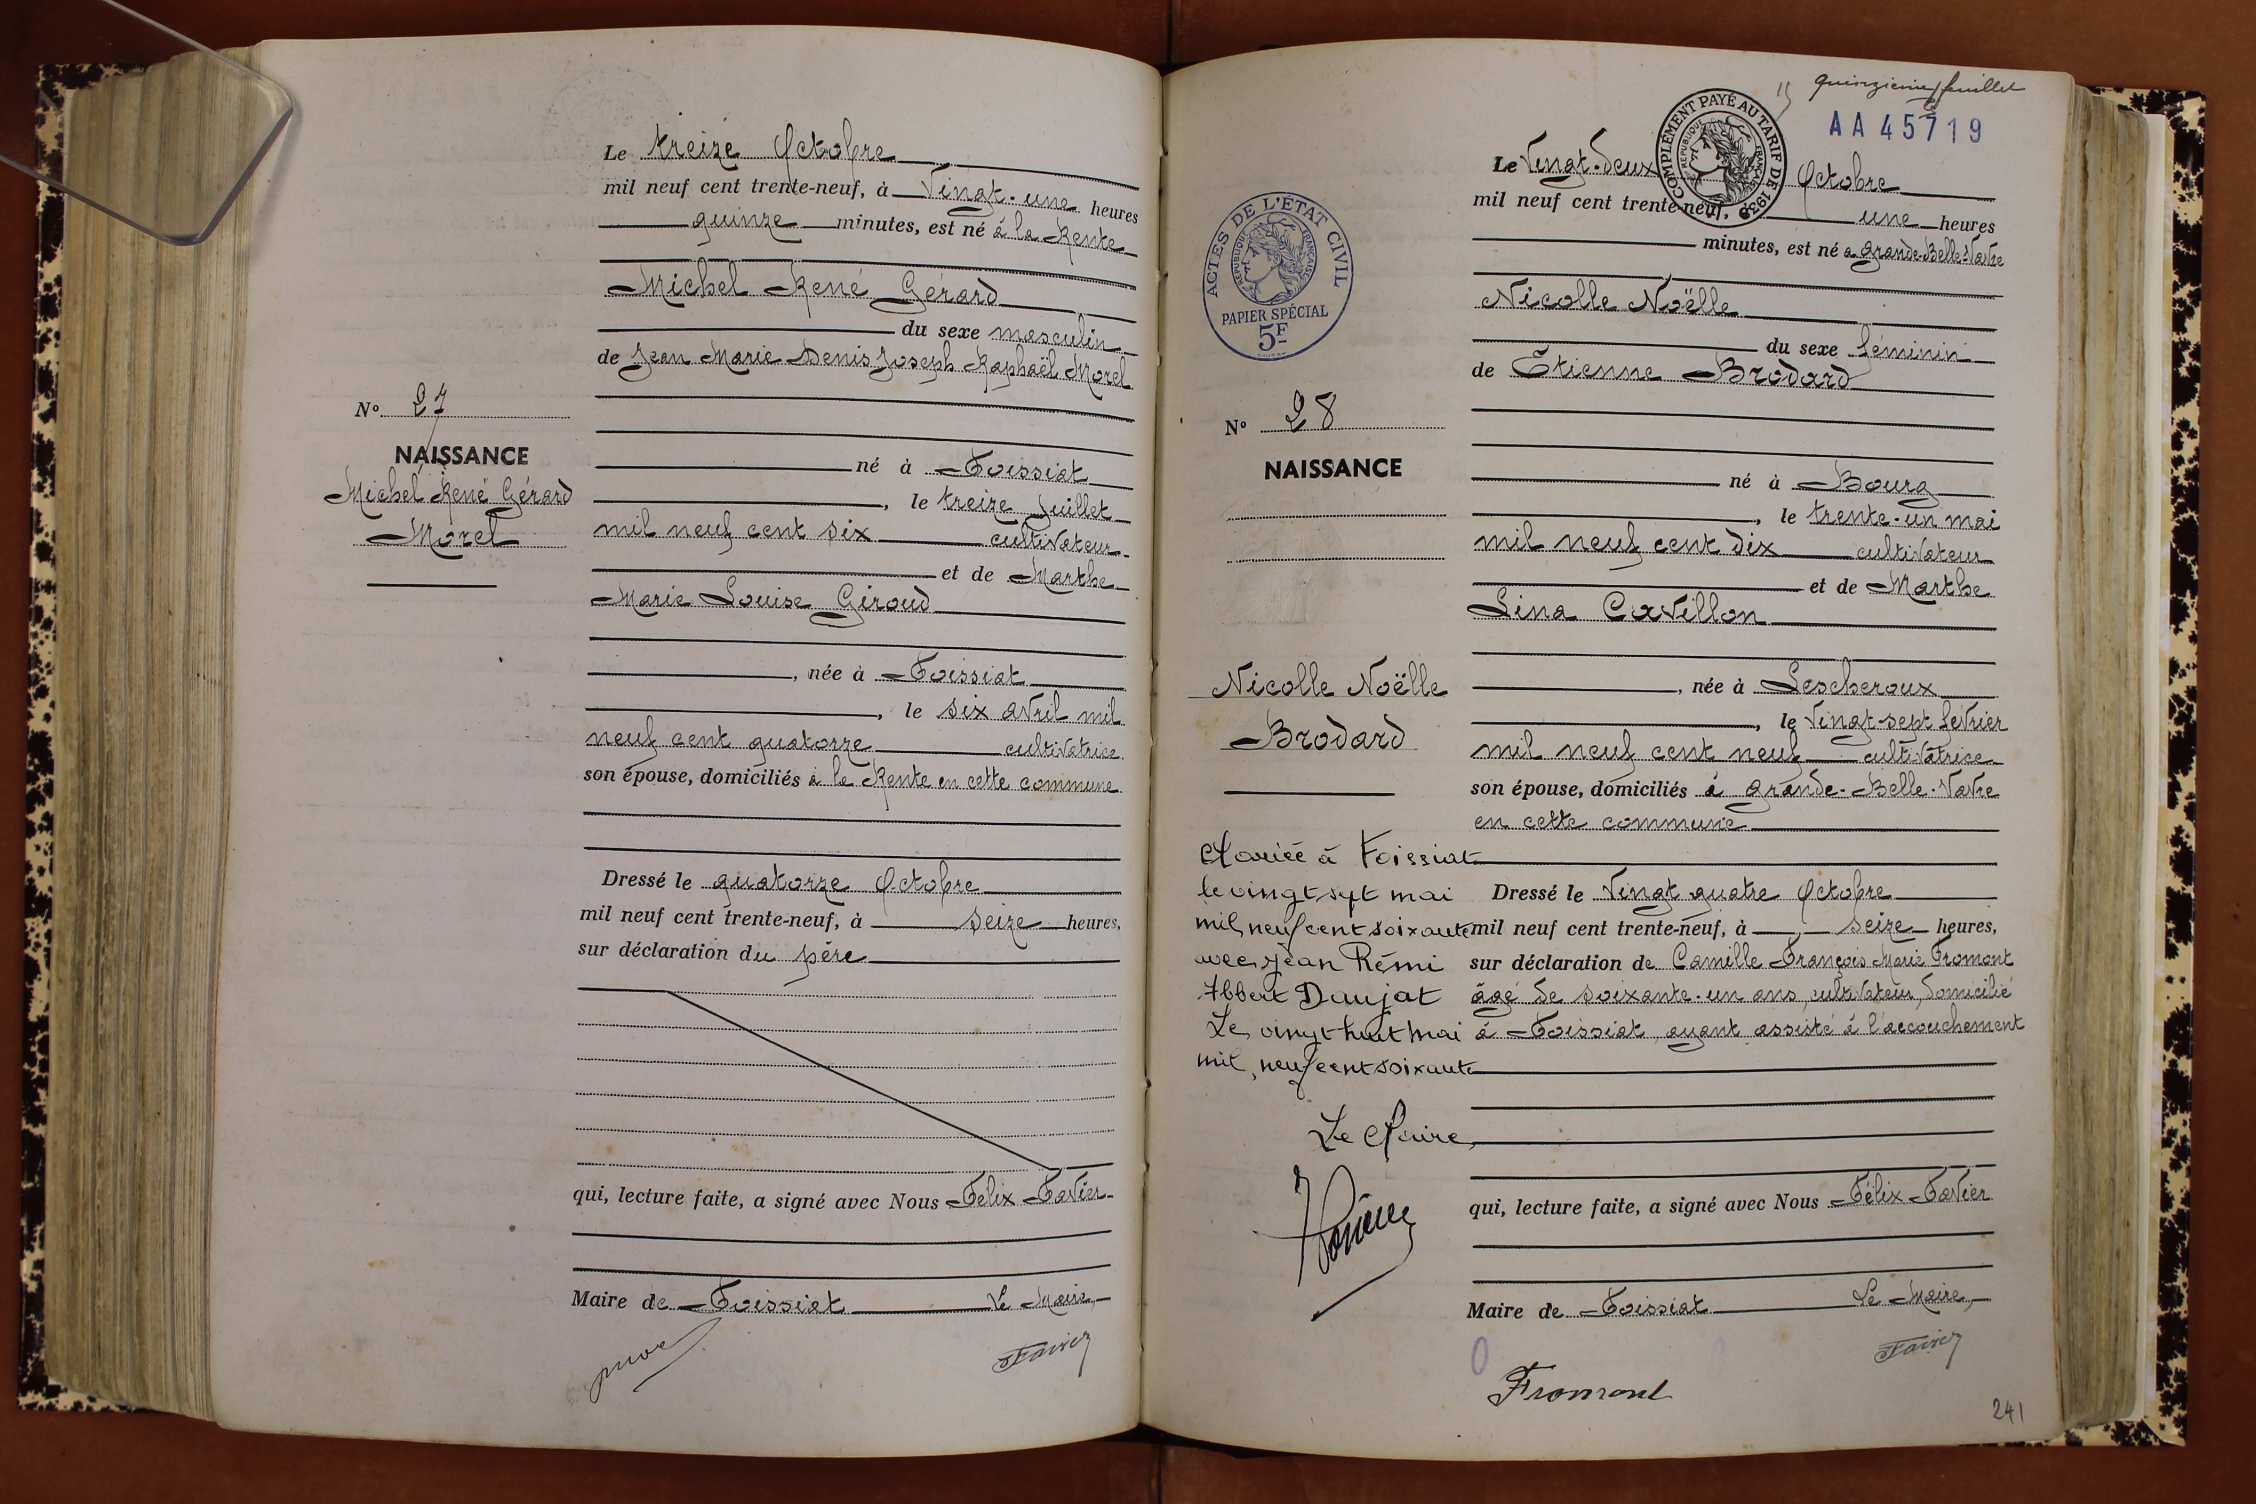 Le treize Octobre
mil neuf cent trente-neuf, à Vingt-une heures
quinze minutes, est né à la Rente
Michel René Gérard
du sexe masculin
de Jean Marie Denis Joseph Raphaël Morel
né à Foissiat
, le treize Juillet
mil neuf cent six cultivateur
et de Marthe
Marie Louise Giroud
, née à Foissiat
, le six avril mil
neuf cent quatorze cultivatrice
son épouse, domiciliés à la Rente en cette commune
Dressé le quatorze Octobre
mil neuf cent trente-neuf, à seize heures,
sur déclaration du père
qui, lecture faite, a signé avec Nous Félix Favier
Maire de Foissiat Le Maire,
Favier
No 27
NAISSANCE
Michel René Gérard
Morel
quinzième feuillet
15
AA 45719
COMPLÉMENT PAYÉ AU TARIF DE 1938
RÉPUBLIQUE FRANÇAISE
ACTES DE L'ÉTAT CIVIL
RÉPUBLIQUE FRANÇAISE
PAPIER SPÉCIAL
5F
No 28
NAISSANCE
Nicolle Noëlle
Brodard
Mariée à Foissiat
le vingt sept mai
mil neuf cent soixante
avec Jean Rémi
Albert Daujat
Le vingt huit mai
mil neuf cent soixante
Le Maire,
Le Vingt-deux Octobre
mil neuf cent trente-neuf, à une heures
minutes, est né à Grande-Belle-Vavre
Nicolle Noëlle
du sexe féminin
de Etienne Brodard
né à Bourg
, le trente-un mai
mil neuf cent dix cultivateur
et de Marthe
Lina Cavillon
, née à Lescheroux
, le Vingt-sept fevrier
mil neuf cent neuf cultivatrice
son épouse, domiciliés à Grande-Belle-Vavre
en cette commune
Dressé le Vingt quatre Octobre
mil neuf cent trente-neuf, à seize heures,
sur déclaration de Camille François Marie Fromont
âgé de soixante-un ans, cultivateur, domicilié
à Foissiat, ayant assisté à l'accouchement
qui, lecture faite, a signé avec Nous Félix Favier
Maire de Foissiat Le Maire,
Favier
Fromont
241